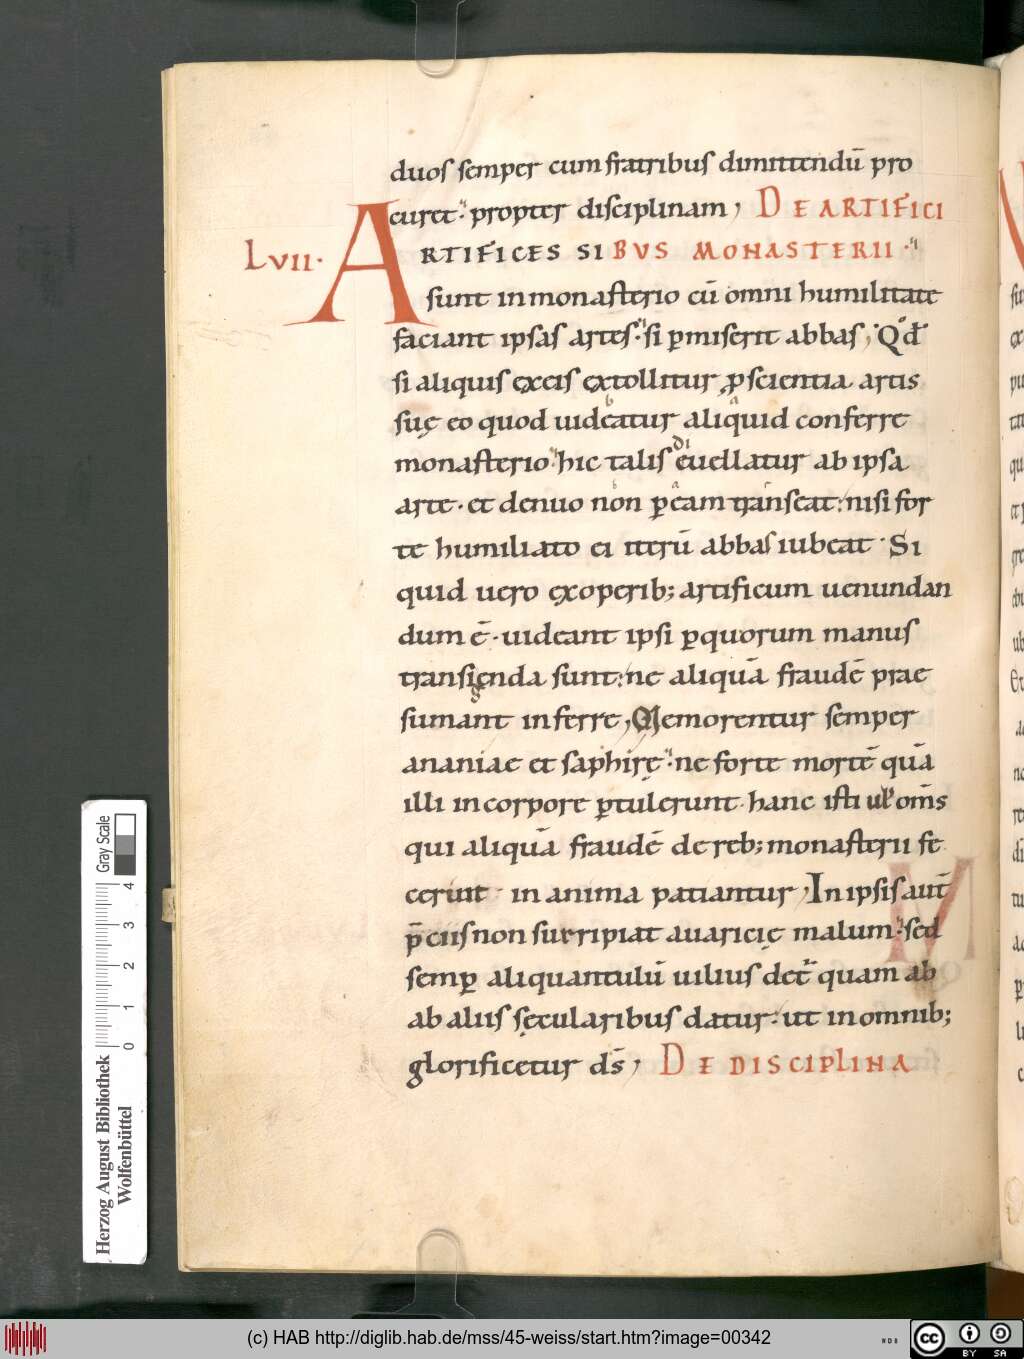 duos semper cum fratribus dimittendū pro
curet· propter disciplinam; DE ARTIFICI
LVII· ARTIFICES SI BVS MONASTERII·
sunt in monasterio cū omni humilitate
faciant ipsas artes· si ꝑmiserit abbas; Qđ
si aliquis ex eis extollitur ꝓ scientia artis
suę eo quod uideatur aliquid conferre
monasterio· hic talis euellatur ab ipsa
arte· et denuo non ꝑ eam transeat· nisi for
te humiliato ei iterū abbas iubeat· Si
quid uero ex operib; artificum uenundan
dum ē· uideant ipsi ꝑ quorum manus
transienda sunt· ne aliquā fraudē prae
sumant inferre; Memorentur semper
ananiae et saphirę· ne forte mortē quā
illi in corpore ꝑtulerunt· hanc isti uƚ om̄s
qui aliquā fraudē de reb; monasterii fe
cerint· in anima patiantur; In ipsis aut̄
p̄ciis non surripiat auaricię malum· sed
semꝑ aliquantulū uilius det̄ quam ab
ab aliis sęcularibus datur· ut in omnib;
glorificetur ds̄; DE DISCIPLINA
Gray Scale
4
3
2
1
0
Herzog August Bibliothek
Wolfenbüttel
(c) HAB http://diglib.hab.de/mss/45-weiss/start.htm?image=00342
WDB
cc
BY SA